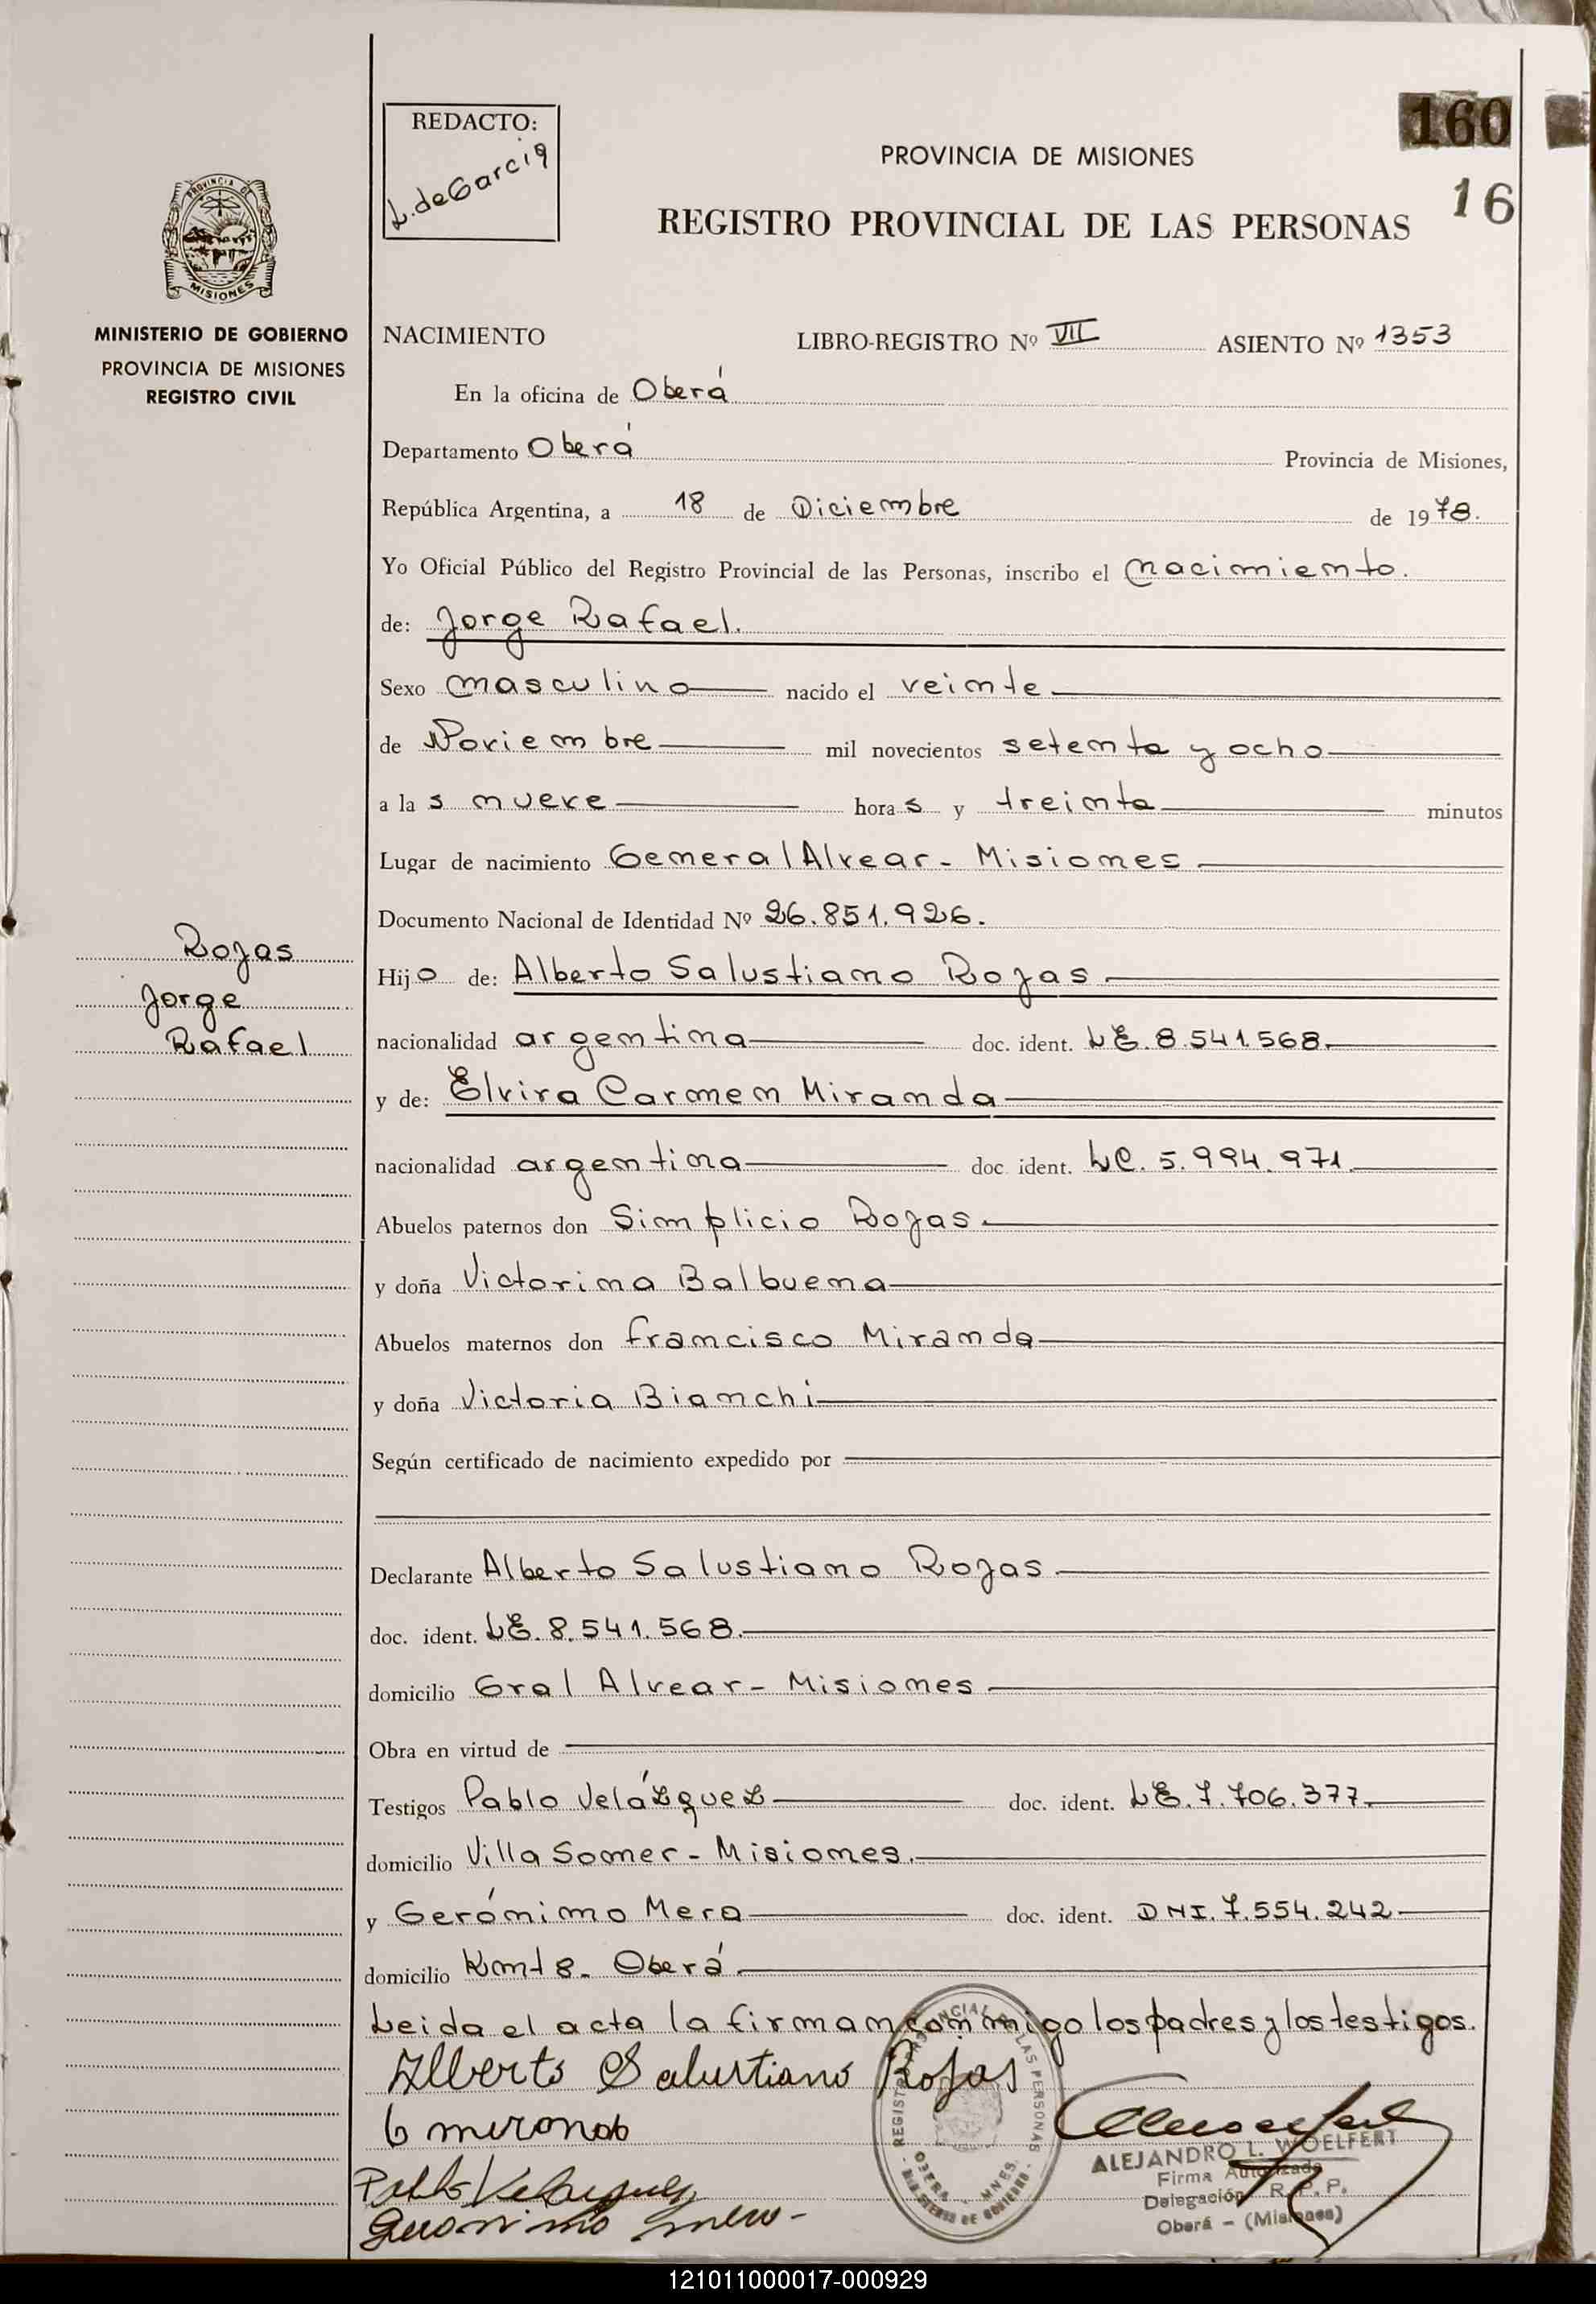 REDACTO:
L. de Garcia
160
16
PROVINCIA DE MISIONES
REGISTRO PROVINCIAL DE LAS PERSONAS
PROVINCIA DE
MISIONES
MINISTERIO DE GOBIERNO
PROVINCIA DE MISIONES
REGISTRO CIVIL
NACIMIENTO LIBRO-REGISTRO Nº VII ASIENTO Nº 1353
En la oficina de Oberá
Departamento Oberá Provincia de Misiones,
República Argentina, a 18 de Diciembre de 1978.
Yo Oficial Público del Registro Provincial de las Personas, inscribo el nacimiento.
de: Jorge Rafael.
Sexo masculino nacido el veinte
de Noviembre mil novecientos setenta y ocho
a las nueve horas y treinta minutos
Lugar de nacimiento General Alvear - Misiones
Documento Nacional de Identidad Nº 26.851.926.
Rojas
Jorge
Rafael
Hijo de: Alberto Salustiano Rojas
nacionalidad argentina doc. ident. LE. 8.541.568.
y de: Elvira Carmen Miranda
nacionalidad argentina doc ident. LC. 5.994.971
Abuelos paternos don Simplicio Rojas
y doña Victorina Balbuena
Abuelos maternos don Francisco Miranda
y doña Victoria Bianchi
Según certificado de nacimiento expedido por
Declarante Alberto Salustiano Rojas
doc. ident. LE. 8.541.568.
domicilio Gral Alvear - Misiones
Obra en virtud de
Testigos Pablo Velázquez doc. ident. LE. 7.706.377.
domicilio Villa Somer - Misiones.
y Gerónimo Mera doc. ident. DNI. 7.554.242
domicilio Km 18. Oberá
Leida el acta la firman conmigo los padres y los testigos.
Alberto Salustiano Rojas
Pablo Velazquez
REGISTRO PROVINCIAL DE LAS PERSONAS
OBERA - MNES.
MINISTERIO DE GOBIERNO
ALEJANDRO L. WOELFERT
Firma Autorizada
Delegación R. P. P.
Oberá - (Misiones)
121011000017-000929